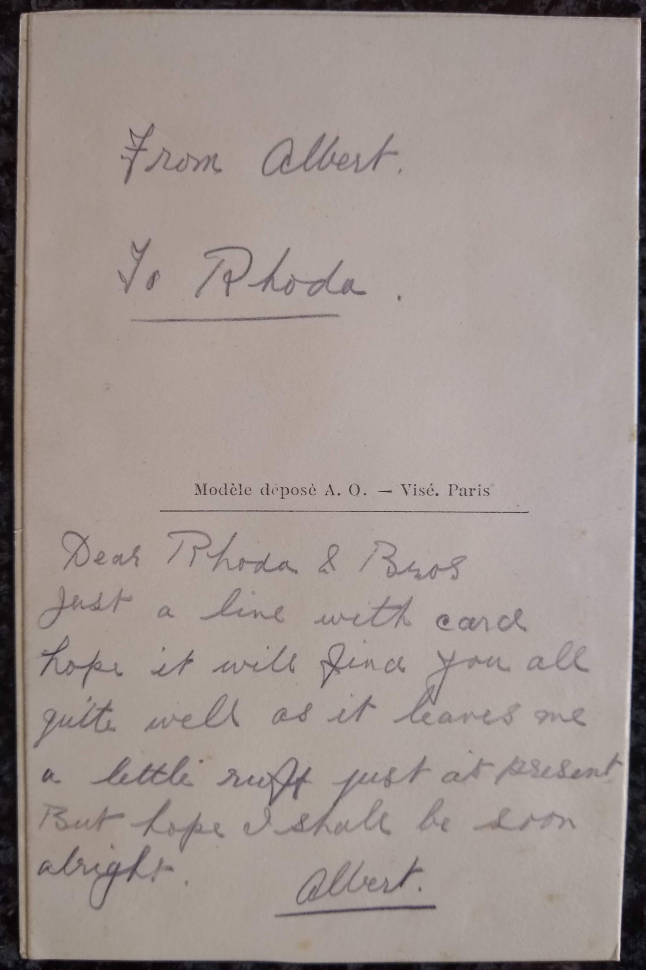 From Albert.
To Rhoda.
Modèle déposé A. O. — Visé. Paris
Dear Rhoda & Bros
Just a line with card
hope it will find you all
quite well as it leaves me
a little ruff just at present
But hope I shall be soon
alright.
Albert.